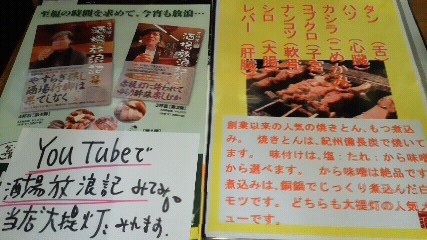 至福の時間を求めて、今宵も放浪…
酒場放浪記
酒場放浪記
YouTubeで
酒場放浪記みてみ。
当店大提灯、みれます。
タン（舌）
ハツ（心臓）
カシラ（こめかみ）
コブクロ（子宮）
ナンコツ（軟骨）
シロ（大腸）
レバー（肝臓）
創業以来の人気の焼きとん、もつ煮込
み。 焼きとんは、紀州備長炭で焼いて
ます。 味付けは、塩：たれ：から味噌
から選べます。 から味噌は絶品です
煮込みは、銅鍋でじっくり煮込んだ白
モツです。どちらも大提灯の人気メ
ューです。